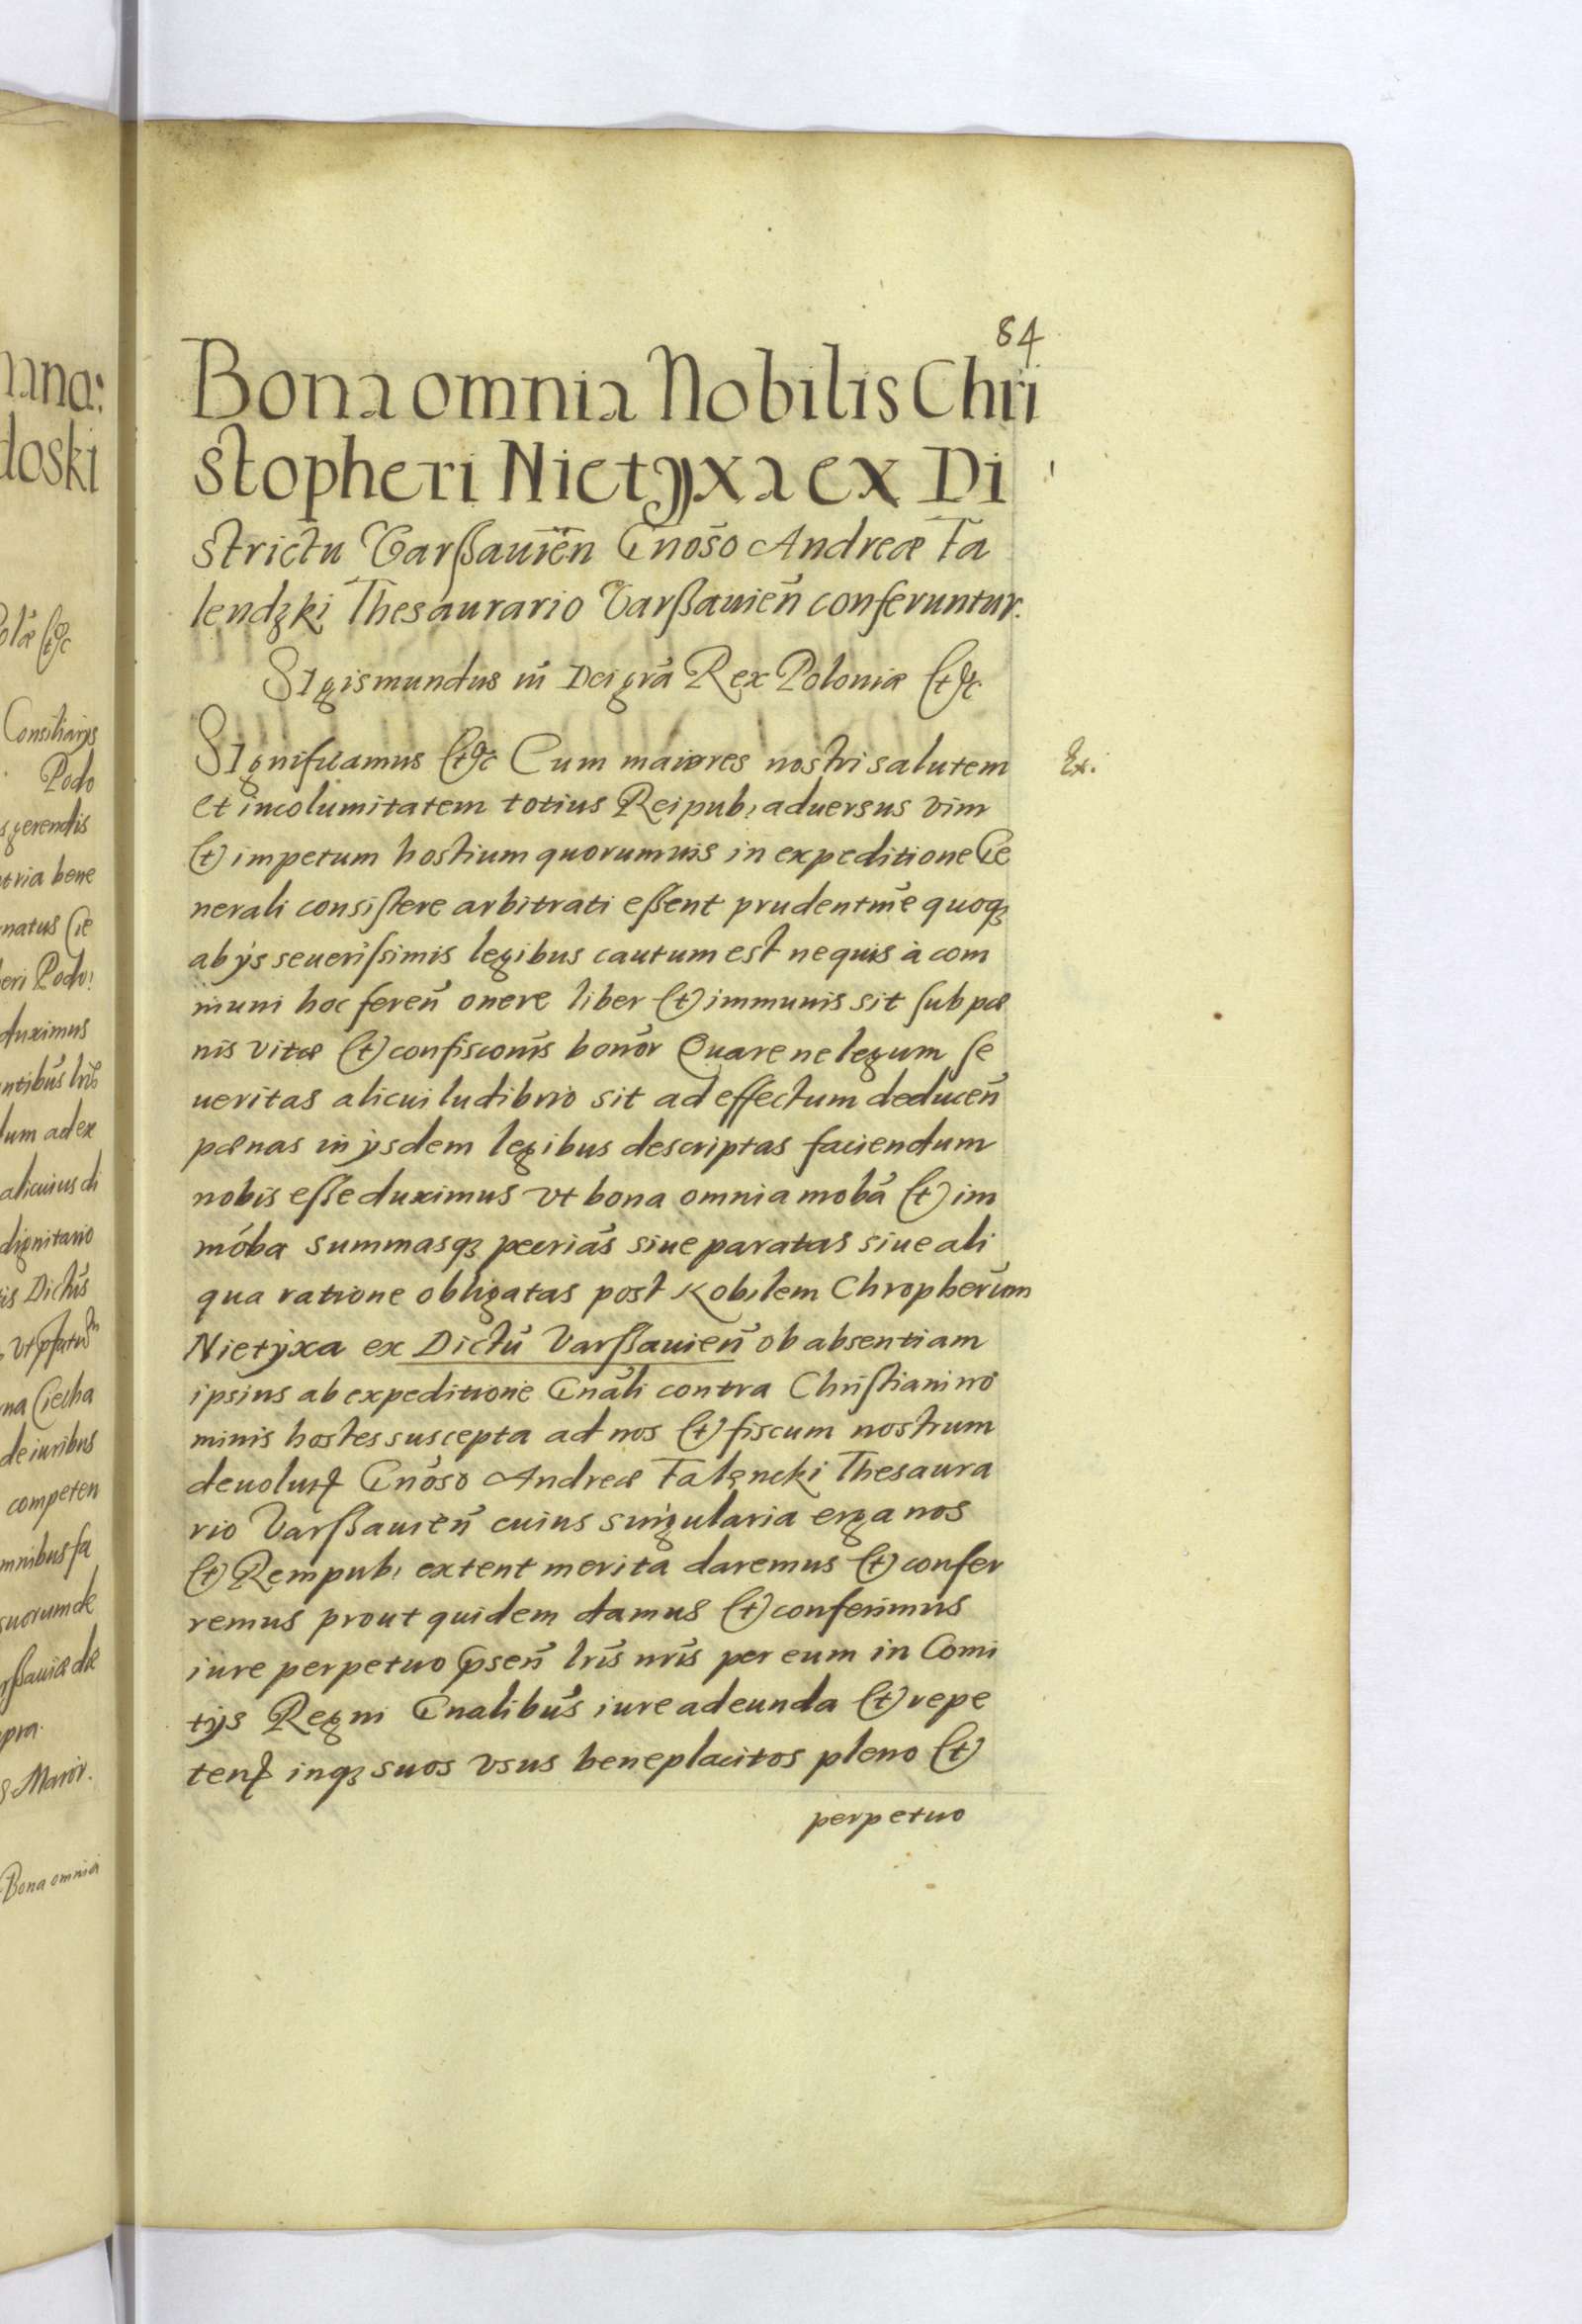 84
Bona omnia Nobilis Chri
stopheri Nietyxa ex Di
strictu Varßauień Gnōso Andreæ Fa
lendzki Thesaurario Varßauień conferuntur.
Sigismundus iii Dei grā Rex Poloniæ etc
Significamus etc Cum maiores nostri salutem
Ex.
et incolumitatem totius Reipub: aduersus vim
et impetum hostium quorumuis in expeditione Ge
nerali consistere arbitrati eßent prudentmē quoq₃
ab ijs seuerissimis legibus cautum est ne quis à com
muni hoc fereń onere liber et immunis sit sub pæ
nis vitæ et confisconis bonor Quare ne legum se
ueritas alicui ludibrio sit ad effectum deduceń
pænas in ijsdem legibus descriptas faciendum
nobis eße duximus vt bona omnia mobā et im
móba summasq₃ pecriās siue paratas siue ali
qua ratione obligatas post Nobilem Chropherum
Nietyxa ex Dictū Varßauień ob absentiam
ipsius ab expeditione Gnāli contra Christiani no
minis hostes suscepta ad nos et fiscum nostrum
deuolut Gnōso Andreæ Falęncki Thesaura
rio Varßauień cuius singularia erga nos
et Rempub: extent merita daremus et confer
remus prout quidem damus et conferimus
iure perpetuo pseń lrīs nrīs per eum in Comi
tijs Regni Gnalibus iure adeunda et repe
tent inq₃ suos vsus beneplacitos pleno et
perpetuo
Consiliarijs
Podo
gerendis
bene
natus Ge
duximus
lum ad ex
alicuius di
dignitario
Dictūs
de iuribus
competen
mnibus fa
suorum de
Bona omnia